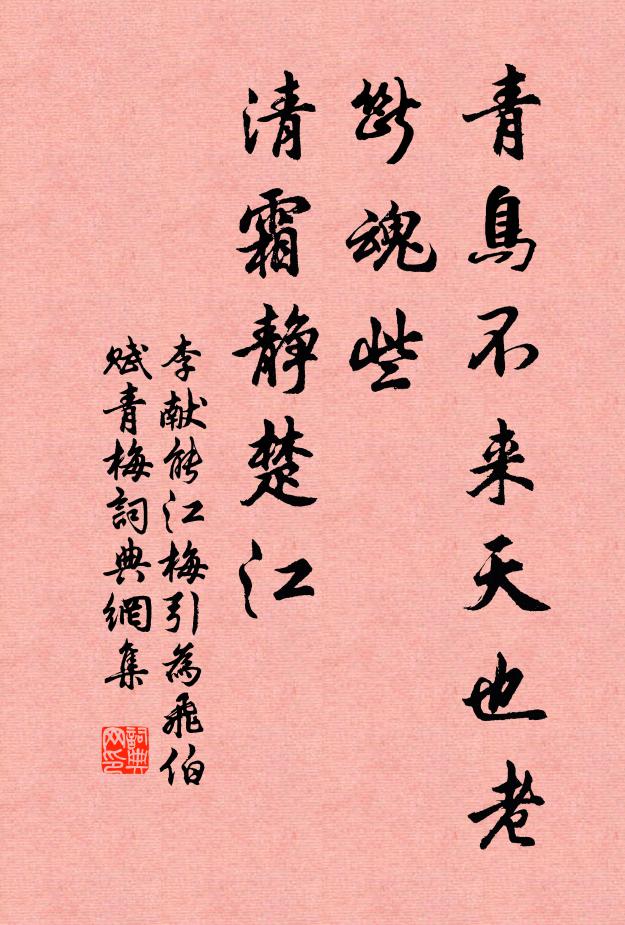 青鳥不来天也老
斷魂些
清霜静楚江
李献能江梅引為飛伯
賦青梅詞典網集
詞典
网印